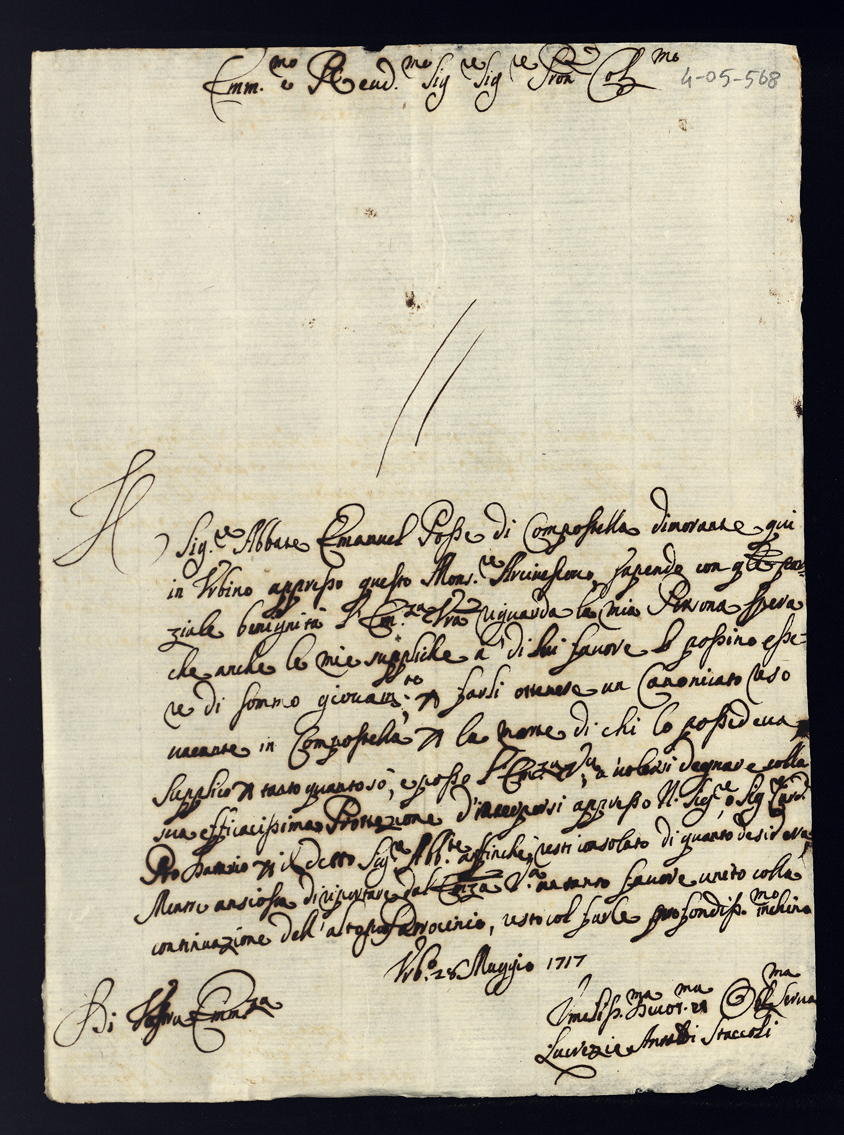 Emm.mo e Reud.mo Sig.re Sig.re Pron Col.mo
4-05-568
Il Sig.re Abbate Emanuel Posse di Compostella dimorante qui
in Urbino appresso questo Mons.re Arciuescouo, sapendo con q.ta par-
ziale benignità l'Em.za Vra riguarda la mia Persona spera
che anche le mie suppliche à di lui fauore le possino esse-
re di sommo giouam.to farli ottenere un Canonicato
uacante in Compostella la morte di chi lo possedeua
Supplico tanto quanto sò, e posso l'Emza Va, à uolersi degnare colla
sua efficacissima Protezione d'interporsi appresso N. Sig.re, o Sig.
il detto Sig.re Abb.te affinche resti consolato di quanto desidera,
Mentre ansiosa di riportare dal Emza Va un tanto fauore unito colla
continuazione dell' Patrocinio, resto col farle profondiss.mo inchino
Urb.o 28 Maggio 1717
Di Vostra Emnza
Umiliss.ma Deuot.ma Obl.ma Serua
Lucrezia Staccoli